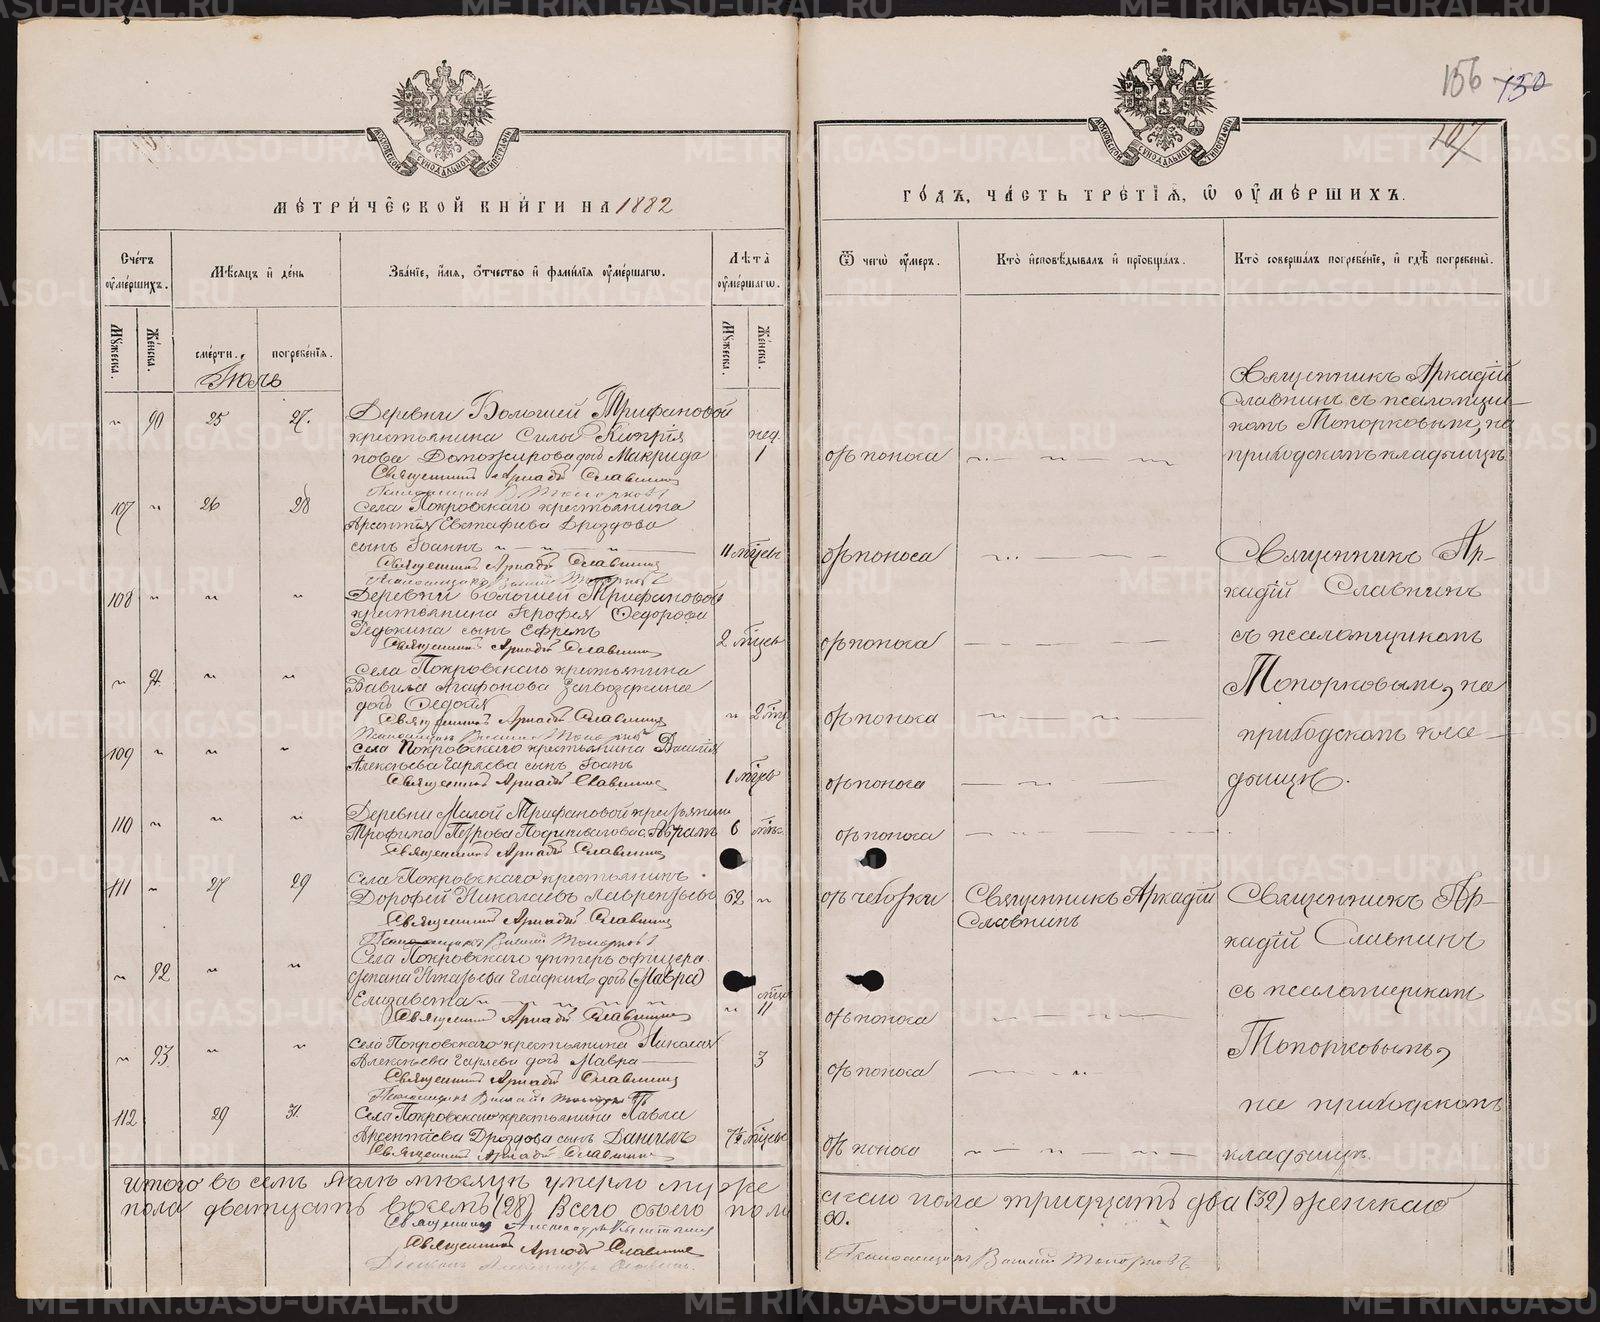 156 150
107
МОСКОВСКОЙ СѴНОДАЛЬНОЙ ТИПОГРАФІИ
МОСКОВСКОЙ СѴНОДАЛЬНОЙ ТИПОГРАФІИ
МЕТРИЧЕСКОЙ КНИГИ НА 1882
ГОДЪ, ЧАСТЬ ТРЕТІЯ, Ѿ ОУМЕРШИХЪ.
Счетъ оумершихъ.
Мужеска. Женска.
Мѣсяцъ и день
смерти. погребенія.
Званіе, имя, отчество и фамилія оумершагѡ.
Лѣта оумершагѡ.
Мужеска. Женска.
Ѿ чегѡ оумеръ.
Кто исповѣдывалъ и пріобщалъ.
Кто совершалъ погребеніе, и гдѣ погребены.
Іюль
" 90 25 27. Деревни Большей Трифановой
крестьянина Силы Кипрія
нова Доможирова дочь Макрида нед. 1 отъ поноса
Священникъ Аркадій Славнинъ
Псаломщикъ В. Топорковъ
Священникъ Аркадій
Славнинъ съ псаломщи
комъ Топорковымъ, на
приходскомъ кладбищѣ
107 " 26 28 Села Покровскаго крестьянина
Арсентія Евстафиева Дроздова
сынъ Іоаннъ 11 мѣсцы отъ поноса
Священникъ Аркадій Славнинъ
Псаломщикъ Василій Топорковъ
Священникъ Ар-
кадій Славнинъ
съ псаломщикомъ
Топорковымъ, на
приходскомъ кла-
дбищѣ.
108 " " " Деревни Большей Трифановой
крестьянина Ерофея Ѳедорова
Редькина сынъ Ефремъ 2 мѣсцы отъ поноса
Священникъ Аркадій Славнинъ
" 91 " " Села Покровскаго крестьянина
Вавила Агафонова Загвоздкина
дочь Ѳедосія " 2 мѣц. отъ поноса
Священникъ Аркадій Славнинъ
Псаломщикъ Василій Топорковъ
109 " " " Села Покровскаго крестьянина Василія
Алексѣева Гаряева сынъ Іоанъ 1 мѣсцъ отъ поноса
Священникъ Аркадій Славнинъ
110 " " " Деревни Малой Трифановой крестьянина
Трофима Петрова сынъ Абрамъ 6 мѣс. отъ поноса
Священникъ Аркадій Славнинъ
111 " 27 29 Села Покровскаго крестьянинъ
Дорофей Николаевъ Лаврентьевъ 62 " отъ чехотки Священникъ Аркадій
Славнинъ
Священникъ Аркадій Славнинъ
Псаломщикъ Василій Топорковъ
Священникъ Ар-
кадій Славнинъ
съ псаломщикомъ
Топорковымъ,
на приходскомъ
кладбищѣ.
" 92 " " Села Покровскаго унтеръ офицера
Степана Игнатьева дочь (Мавра)
Елизавета " мѣц 11 отъ поноса
Священникъ Аркадій Славнинъ
" 93 " " Села Покровскаго крестьянина Николая
Алексѣева Гаряева дочь Мавра 3 отъ поноса
Священникъ Аркадій Славнинъ
Псаломщикъ Василій Топорковъ
112 29 31. Села Покровскаго крестьянина Павла
Арсентіева Дроздова сынъ Даніилъ 7½ мѣсцы отъ поноса
Священникъ Аркадій Славнинъ
Итого въ семъ Іюлѣ мѣсяцѣ умерло муже
скаго пола тридцать два (32) женскаго
пола дватцать восемь (28) Всего обоего пола
60.
Священникъ Александръ
Священникъ Аркадій Славнинъ
Псаломщикъ Василій Топорковъ
METRIKI.GASO-URAL.RU